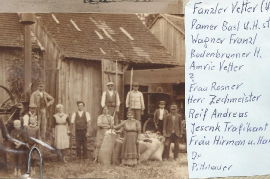 Fanzler Vetter (U
Damer Basl U.H. st
Wagner Franzl
Bodenbrunner H.
Amrie Vetter
?
Frau Rosner
Herr Zechmeister
Reif Andreas
Jesenk Trafikant
Frau Hirman u. Han
Dr
Pittnauer